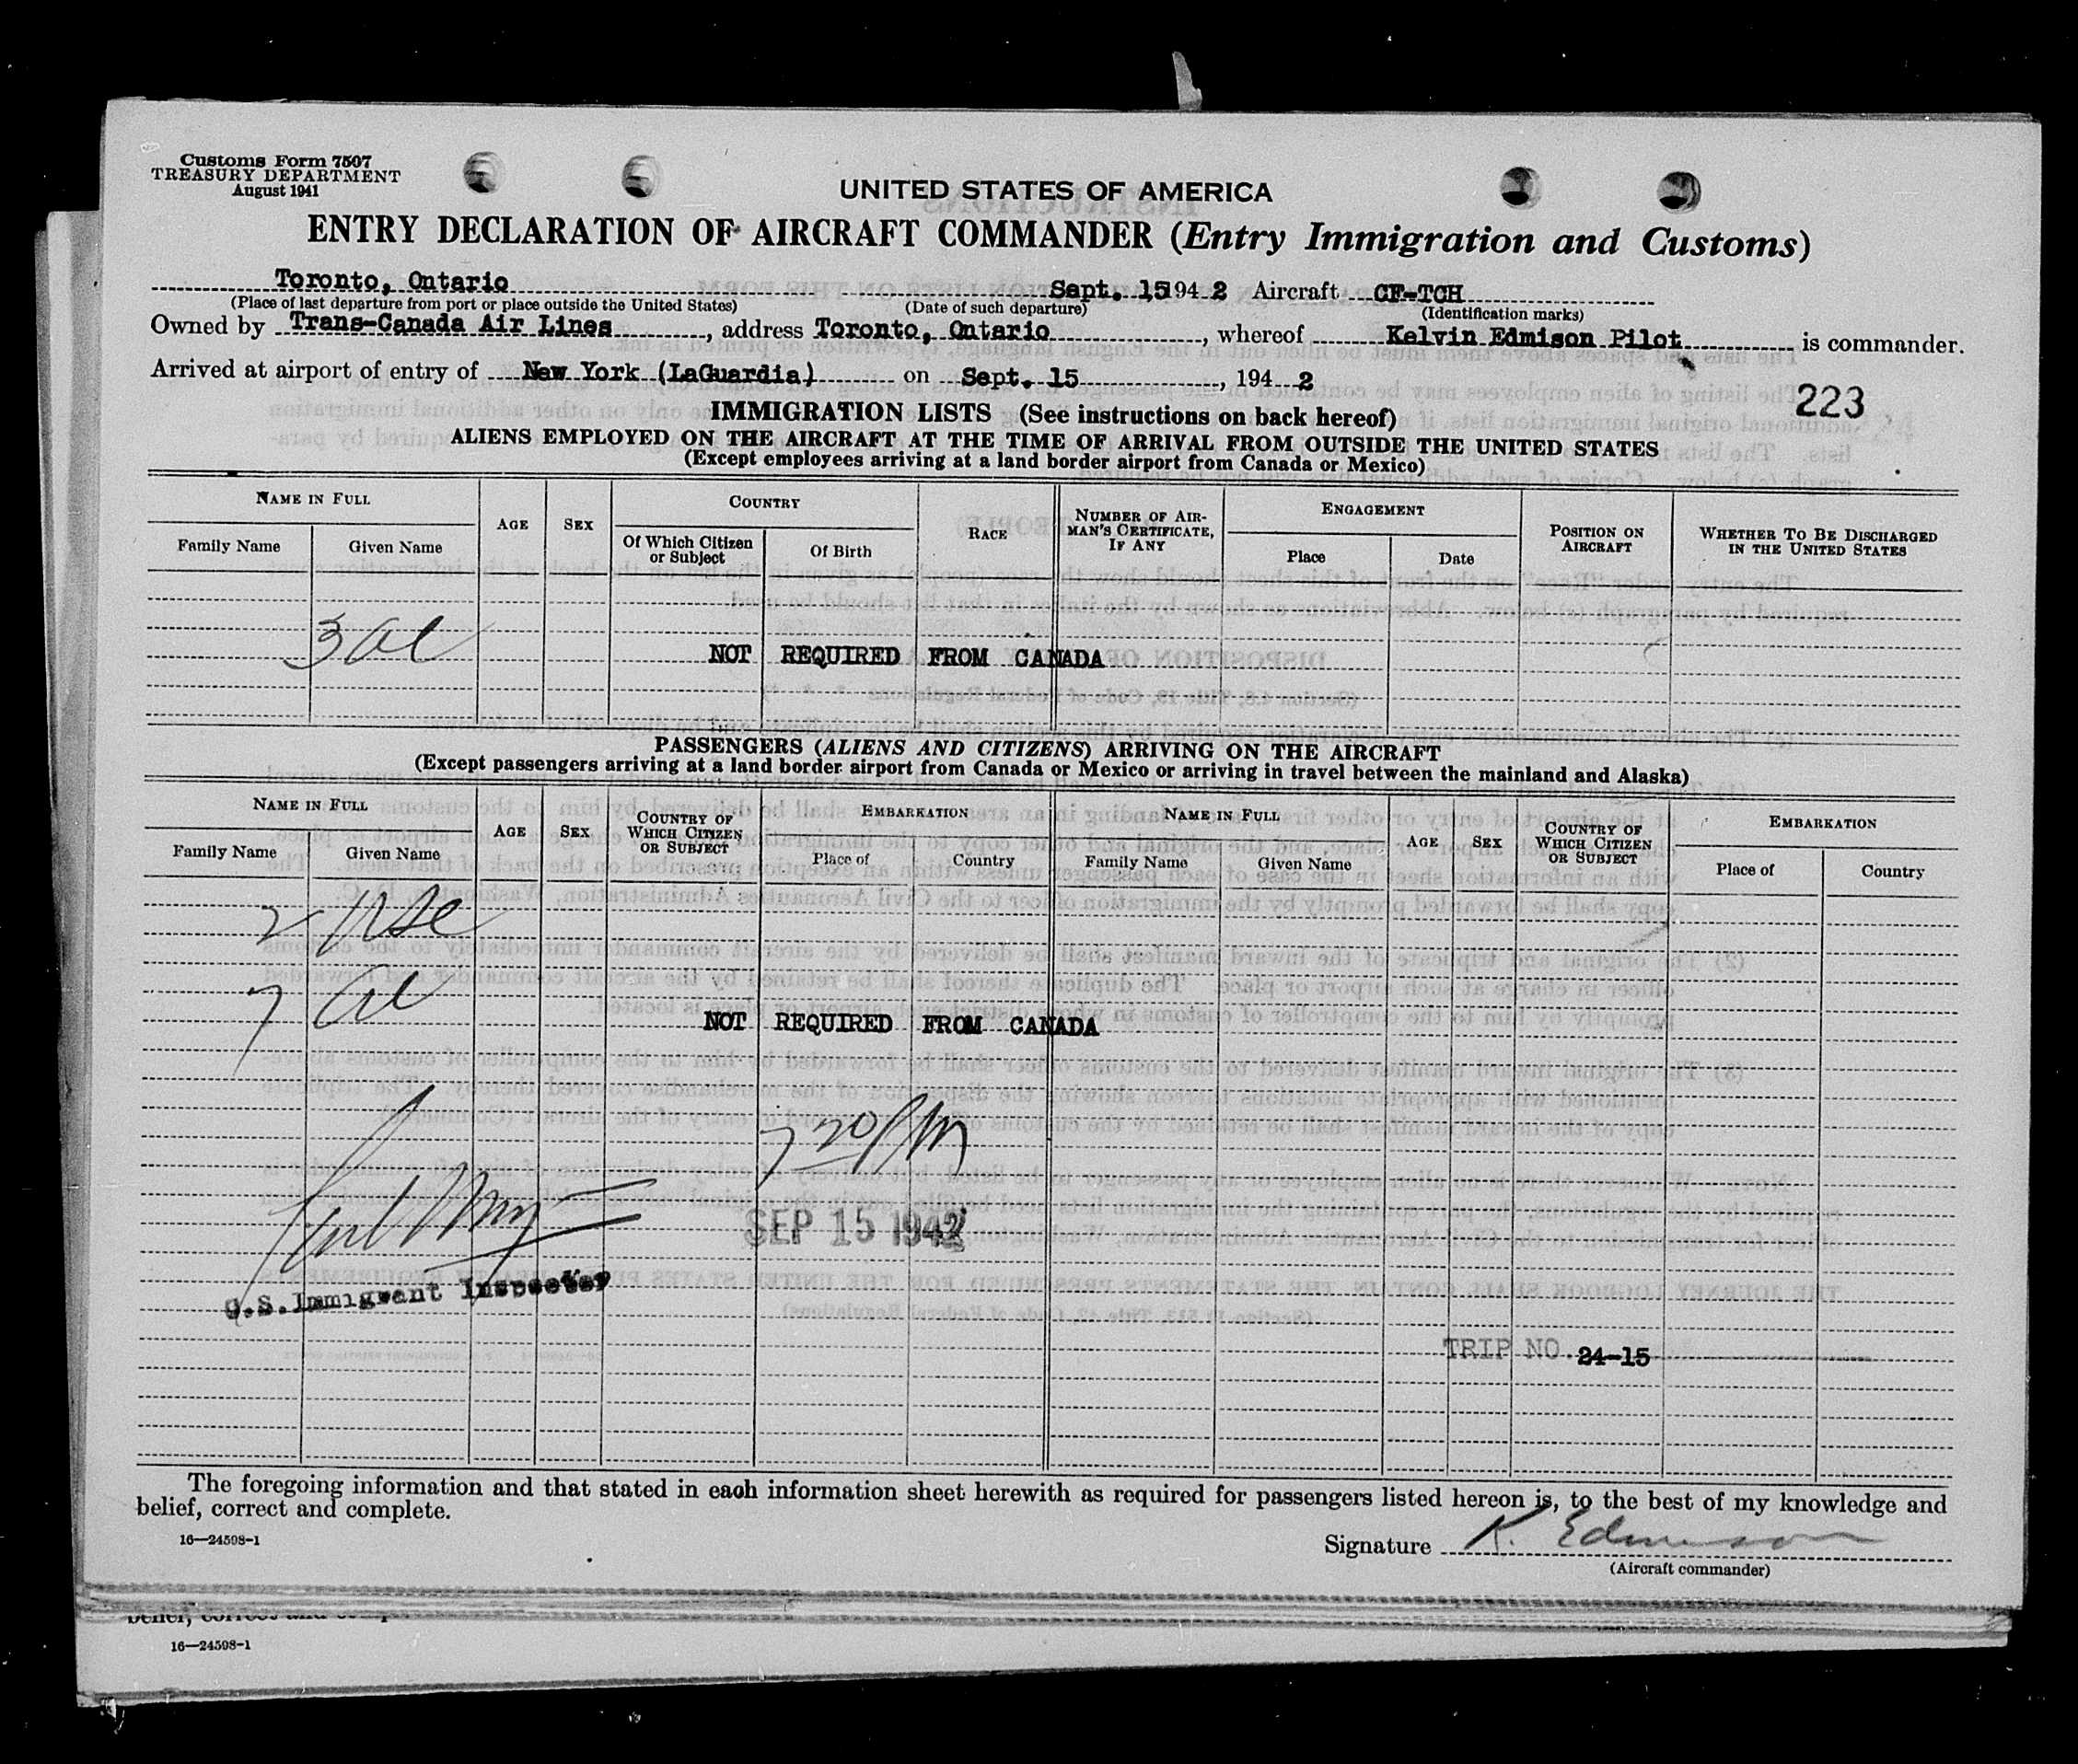 Customs Form 7507
TREASURY DEPARTMENT
August 1941
UNITED STATES OF AMERICA
ENTRY DECLARATION OF AIRCRAFT COMMANDER (Entry Immigration and Customs)
Toronto, Ontario Sept. 15 194 2 Aircraft CF-TCH
(Place of last departure from port or place outside the United States) (Date of such departure) (Identification marks)
Owned by Trans-Canada Air Lines, address Toronto, Ontario, whereof Kelvin Edmison Pilot is commander.
Arrived at airport of entry of New York (LaGuardia) on Sept. 15, 194 2
223
IMMIGRATION LISTS (See instructions on back hereof)
ALIENS EMPLOYED ON THE AIRCRAFT AT THE TIME OF ARRIVAL FROM OUTSIDE THE UNITED STATES
(Except employees arriving at a land border airport from Canada or Mexico)
NAME IN FULL AGE SEX COUNTRY RACE NUMBER OF AIRMAN'S CERTIFICATE, IF ANY ENGAGEMENT POSITION ON AIRCRAFT WHETHER TO BE DISCHARGED IN THE UNITED STATES
Family Name Given Name Of Which Citizen or Subject Of Birth Place Date
3 al
NOT REQUIRED FROM CANADA
PASSENGERS (ALIENS AND CITIZENS) ARRIVING ON THE AIRCRAFT
(Except passengers arriving at a land border airport from Canada or Mexico or arriving in travel between the mainland and Alaska)
NAME IN FULL AGE SEX COUNTRY OF WHICH CITIZEN OR SUBJECT EMBARKATION NAME IN FULL AGE SEX COUNTRY OF WHICH CITIZEN OR SUBJECT EMBARKATION
Family Name Given Name Place of Country Family Name Given Name Place of Country
2 USC
7 al
NOT REQUIRED FROM CANADA
7 20 PM
SEP 15 1942
U.S. Immigrant Inspector
TRIP NO. 24-15
The foregoing information and that stated in each information sheet herewith as required for passengers listed hereon is, to the best of my knowledge and
belief, correct and complete.
16—24598-1
Signature K. Edmison
(Aircraft commander)
16—24598-1